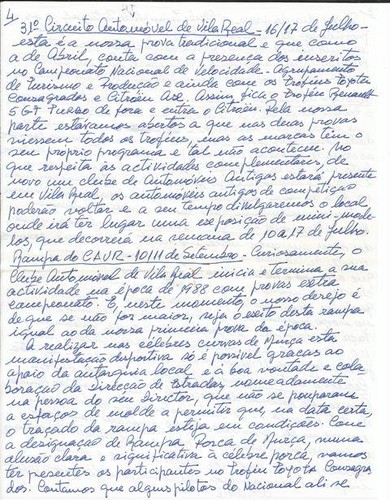 4
31º Circuito Automóvel de Vila Real - 16/17 de Julho -
esta é a nossa prova tradicional e que como
a de Abril, conta com a presença dos inscritos
no Campeonato Nacional de Velocidade - Agrupamento
de Turismo e Produção e ainda com os troféus Toyota
Consagrados e Citroën Axe. Assim fica o troféu Renault
5 GT Turbo de fora e entra o Citroën. Pela nossa
parte estávamos abertos a que nas duas provas
viessem todos os troféus, mas as marcas têm o
seu próprio programa e tal não acontece. No
que respeita às actividades complementares, de
novo um clube de Automóveis Antigos estará presente
em Vila Real, os automóveis antigos de competição
poderão voltar e a seu tempo divulgaremos o local
onde irá ter lugar uma exposição de mini-mode-
los, que decorrerá na semana de 10 a 17 de Julho.
Rampa do CAVR - 10/11 de Setembro - Curiosamente, o
Clube Automóvel de Vila Real inicia e termina a sua
actividade na época de 1988 com provas extra
campeonato. E neste momento o nosso desejo é
de que se não for maior, seja o êxito desta rampa
igual ao da nossa primeira prova da época.
A realizar nas célebres curvas de Murça esta
manifestação desportiva só é possível graças ao
apoio da autarquia local e à boa vontade e cola
boração da Direcção de Estradas, nomeadamente
na pessoa do seu Director, que não se pouparam
a esforços de molde a permitir que, na data certa,
o traçado da rampa esteja em condições. Com
a designação de Rampa Porca de Murça, numa
alusão clara e significativa à célebre porca, vamos
ter presentes os participantes no troféu Toyota Consagra
dos. Contamos que alguns pilotos do Nacional ali se